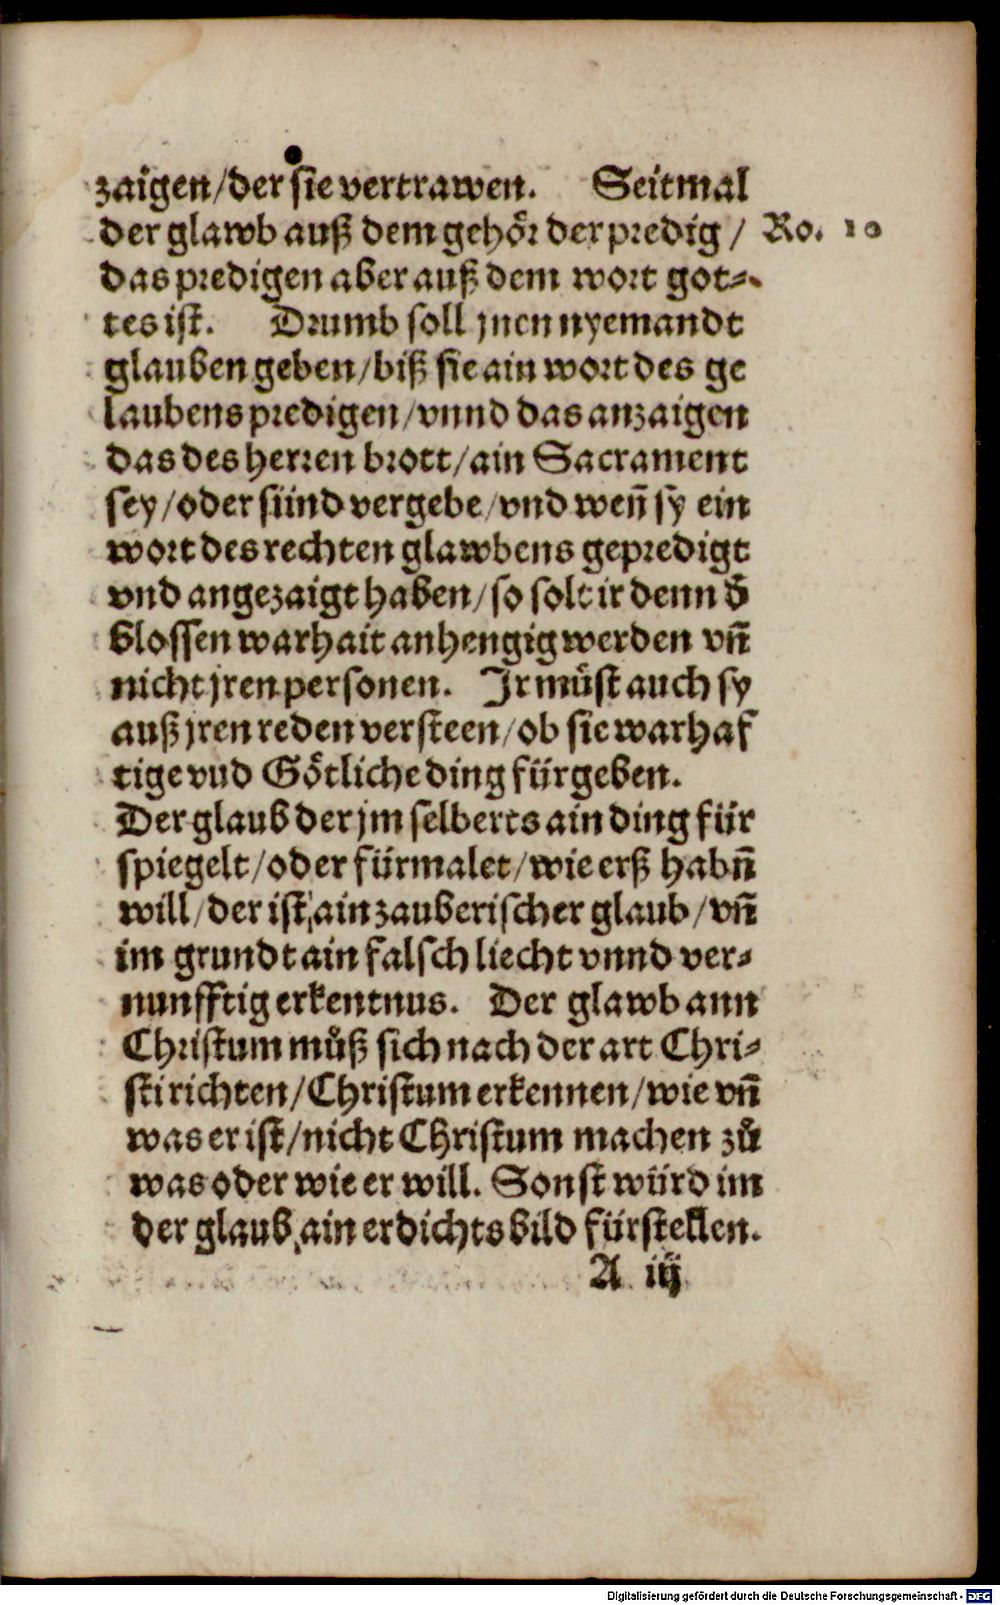 zaigen/der sie vertrawen. Seitmal
der glawb auß dem gehoͤr der predig / Ro. 10
das predigen aber auß dem wort got-
tes ist. Drumb soll jnen nyemandt
glauben geben/biß sie ain wort des ge
laubens predigen/vnnd das anzaigen
das des herren brott/ain Sacrament
sey/oder sünd vergebe/vnd weñ sy ein
wort des rechten glawbens gepredigt
vnd angezaigt haben/so solt ir denn d̕
blossen warhait anhengig werden vñ
nicht jren personen. Ir muͤst auch sy
auß jren reden versteen/ob sie warhaf
tige vnd Goͤtliche ding fürgeben.
Der glaub der jm selberts ain ding für
spiegelt/oder fürmalet/wie erß habñ
will/der ist ain zauberischer glaub/vñ
im grundt ain falsch liecht vnnd ver-
nunfftig erkentnus. Der glawb ann
Christum muͦß sich nach der art Chri-
sti richten/Christum erkennen/wie vñ
was er ist/nicht Christum machen zuͦ
was oder wie er will. Sonst würd im
der glaub ain erdichts bild fürstellen.
A iij
Digitalisierung gefördert durch die Deutsche Forschungsgemeinschaft - DFG